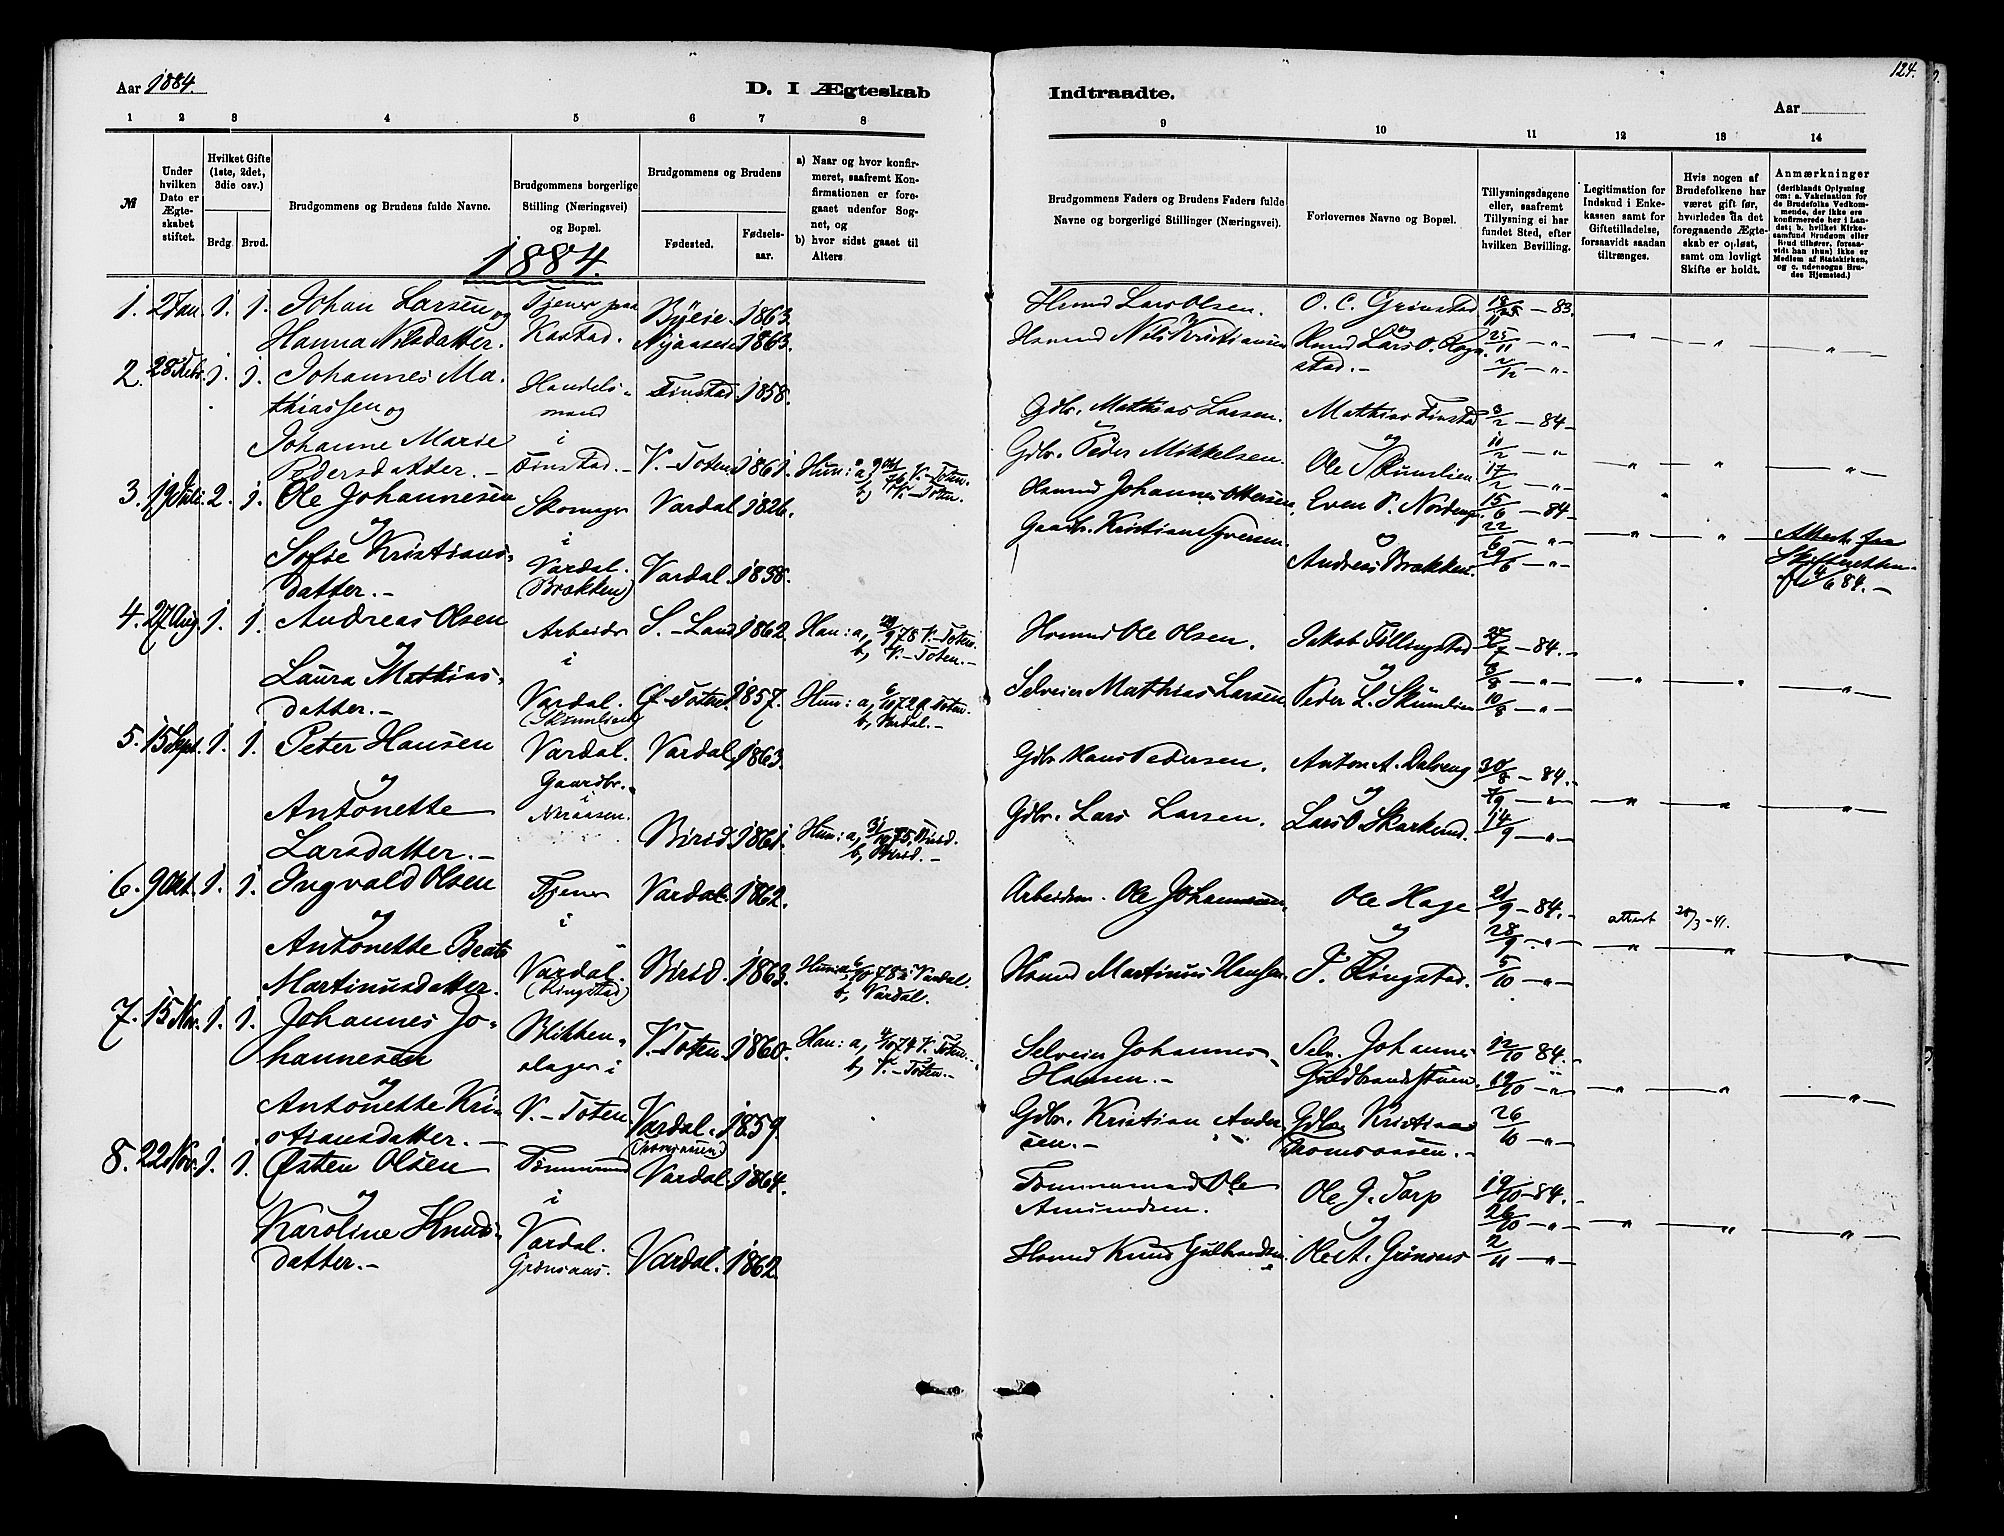 Aar 1884.
D. I Ægteskab
1 2 3 4 5 6 7 8
№
Under hvilken Dato er Ægteskabet stiftet.
Hvilket Gifte (1ste, 2det, 3die osv.)
Brdg. Brud.
Brudgommens og Brudens fulde Navne.
Brudgommens borgerlige Stilling (Næringsvei) og Bopæl.
Brudgommens og Brudens
Fødested.
Fødselsaar.
a) Naar og hvor konfirmeret, saafremt Konfirmationen er foregaaet udenfor Sognet, og
b) hvor sidst gaaet til Alters.
1884.
1. 2 Jan. 1. 1. Johan Larsen og Tjener paa Byeie. 1863.
Hanna Nilsdatter. Kastad. 1863.
2. 28 Febr. 1. 1. Johannes Ma- Handels- Finstad. 1858.
thiassen og mand
Johanne Marie i
Pedersdatter. - Finstad. - V.-Toten. 1861. Hun: a, V.-Toten.
b, V.-Toten.
3. 19 Juli. 2. 1. Ole Johannesen Skomager Vardal. 1826.
og i
Sofie Kristians- Vardal. Vardal. 1838.
datter. - (Brækken)
4. 27 Aug. 1. 1. Andreas Olsen Arbeider S.-Land. 1862. Han: a, 29/9 78 V.-Toten.
og i b, V.-Toten. -
Laura Mathias- Vardal. Ø.-Toten. 1857. Hun: a, 6/10 72 Ø.Toten.
datter. - (Skumlien) b, Vardal. -
5. 15 Sept. 1. 1. Peter Hansen Vardal. Vardal. 1863.
og Gaardbr.
Antonette i
Larsdatter. - Birid. 1861. Hun: a, 75. Birid.
b, Birid. -
6. 9 Okt. 1. 1. Ingvald Olsen Tjener Vardal. 1862.
og i
Antonette Beate Vardal. Birid. 1863. Hun: a, 6/10 78 i Vardal.
Martinusdatter. (Ringstad) b, Vardal.
7. 15 Nov. 1. 1. Johannes Jo- Blikken- V.-Toten. 1860. Han: a, 4/10 74 V.-Toten.
hannesen slager i b, V.-Toten. -
og
Antonette Kri- V.-Toten Vardal. 1859.
stiansdatter. -
8. 22 Nov. 1. 1. Østen Olsen Tømmermand Vardal. 1864.
og i
Karoline Knuds- Vardal. Vardal. 1862.
datter. - Grønsaas.
Indtraadte.
124.
Aar
9 10 11 12 13 14
Brudgommens Faders og Brudens Faders fulde Navne og borgerlige Stillinger (Næringsvei).
Forlovernes Navne og Bopæl.
Tillysningsdagene eller, saafremt Tillysning ei har fundet Sted, efter hvilken Bevilling.
Legitimation for Indskud i Enkekassen samt for Giftetilladelse, forsaavidt saadan tiltrænges.
Hvis nogen af Brudefolkene har været gift før, hvorledes da det foregaaende Ægteskab er opløst, samt om lovligt Skifte er holdt.
Anmærkninger
(deriblandt Oplysning om: a. Vakcination for de Brudefolks Vedkommende, der ikke ere konfirmerede her i Landet; b. hvilket Kirkesamfund Brudgom eller Brud tilhører, forsaavidt han (hun) ikke er Medlem af Statskirken, og c. udensogns Brudes Hjemsted.)
Husmd Lars Olsen. O. C. Grinstad - 83.
og
Husmd Nils Kristiansen Husmd Lars O. 25/11 - " -
stad. - 2/12 - " -
Gdbr. Mathias Larsen. Mathias Finstad 3/2 - 84 -
og 10/2 - " -
Gdbr. Peder Mikkelsen. Ole Skumlien. 17/2 - " -
Husmd Johannes Ottersen. Even P. Nordeng. 15/6 - 84 -
Gaardbr. Kristian Iversen. og 22/6 - " - Attest fra
Andreas Brækken. 29/6 - " - Skifteretten
4/6 84. -
Husmd Ole Olsen. Jakob Føllingstad 27/7 - 84. -
og 3/8 - " -
Selveier Mathias Larsen Peder L. Skumlien 10/8 - " -
Gdbr. Hans Pedersen. Anton A. Dalseng 30/8 - 84. -
og 7/9 - " -
Gdbr. Lars Larsen. Lars O. 14/9 - " -
Arbeidsm. Ole Johannesen. Ole Hage 21/9 - 84. - attest 28/3 - 41.
og 28/9 - " -
Husmd Martinus Hansen P. Ringstad. 5/10 - " -
Selveier Johannes Selv. Johannes 12/10 84. -
Hansen. - Guldbrandstuen 19/10 - " -
Gdbr. Kristian Ander- Gdbr Kristian 26/10 - " -
sen. - Thomasasen. -
Tømmermand Ole Ole J. Torp 19/10 - 84. -
Amundsen. og 26/10 - " -
Husmd Knud Gulbrandsen. Ole A. Grønaas 2/11 - " -